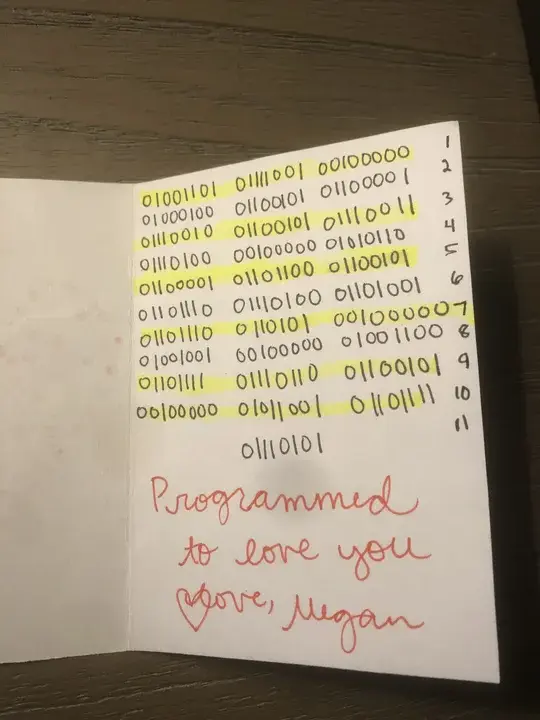 01001101 01111001 00100000 1
01000100 01100101 01100001 2
01110010 01100101 01110011 3
01110100 00100000 01010110 4
01100001 01101100 01100101 5
01101110 01110100 01101001 6
01101110 0110101 001000000 7
01001001 00100000 01001100 8
01101111 01110110 01100101 9
00100000 01011001 01101111 10
01110101 11
Programmed
to love you
Love, Megan